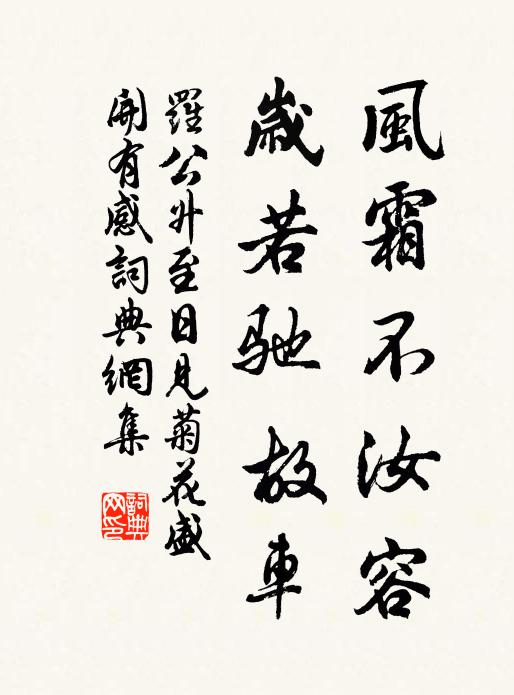 風霜不汝容
歲若馳故車
羅公升至日見菊花盛
開有感詞典網集
詞典網印